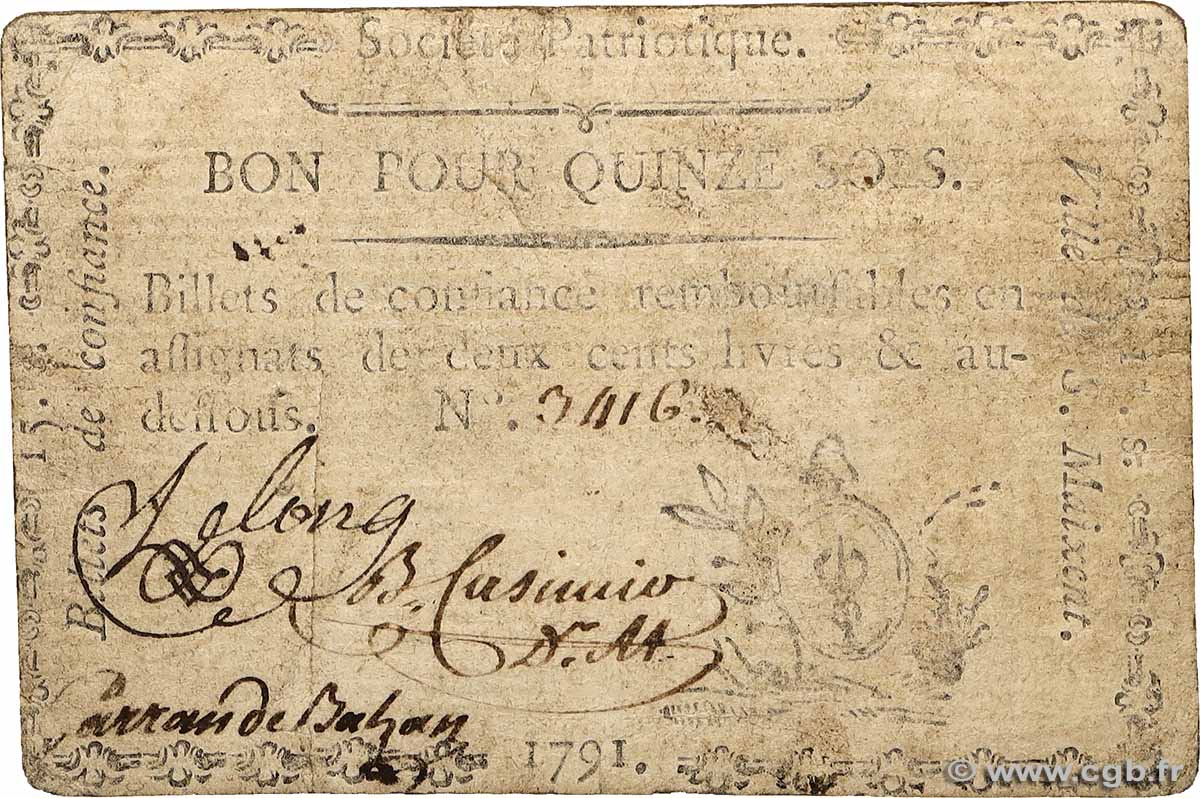 Société Patriotique.
BON POUR QUINZE SOLS.
Billets de confiance rembourſables en
aſſignats de deux cents livres & au-
deſſous. Nº. 3416.
Lelong
B. Casimir
1791.
15. s.
Billets de confiance.
Ville de S. Maixent.
15. s.
© www.cgb.fr